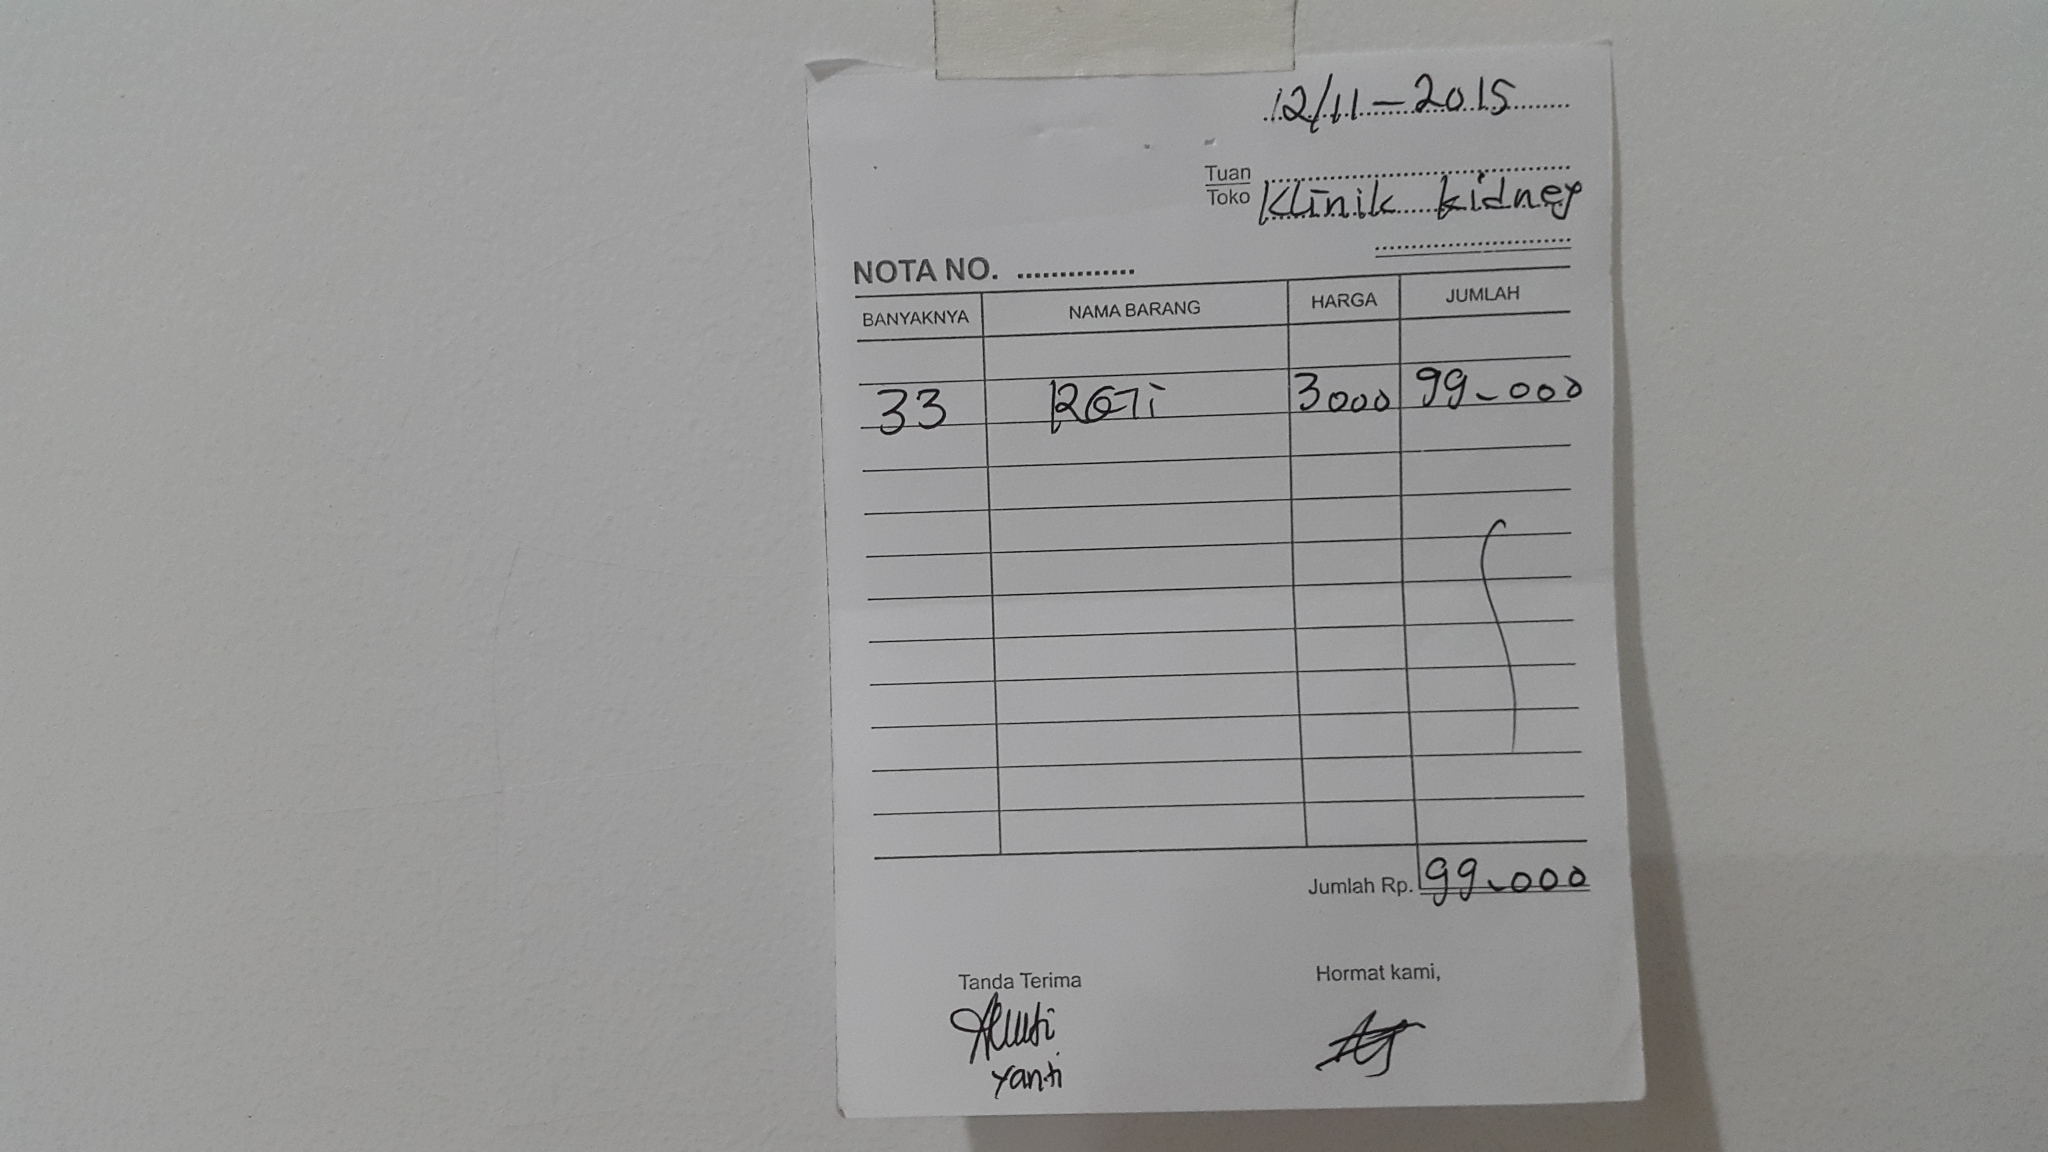 12/11-2015
Tuan
Toko Klinik kidney
NOTA NO. ..............
BANYAKNYA NAMA BARANG HARGA JUMLAH
33 ROTi 3000 99.000
Jumlah Rp. 99.000
Tanda Terima Hormat kami,
Yanti